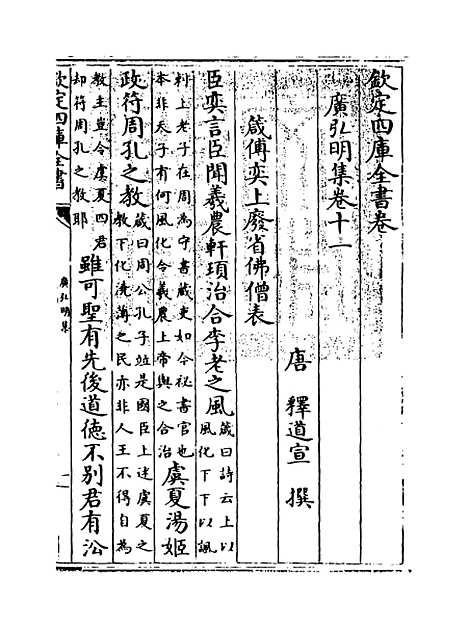 欽定四庫全書卷
廣弘明集卷十一
唐 釋道宣 撰
箴傅奕上廢省佛僧表
臣奕言臣聞羲農軒頊治合李老之風箴曰詩云上以
風化下下以諷
刺上老子在周為守書藏吏如今祕書官也
本非天子有何風化令羲農上帝與之合治虞夏湯姬
政符周孔之教箴曰周公孔子並是國臣上述虞夏之
教下化澆薄之民亦非人王不得自為
教主豈令虞夏四君
却符周孔之教耶雖可聖有先後道德不別君有沿
欽定四庫全書
廣弘明集
一